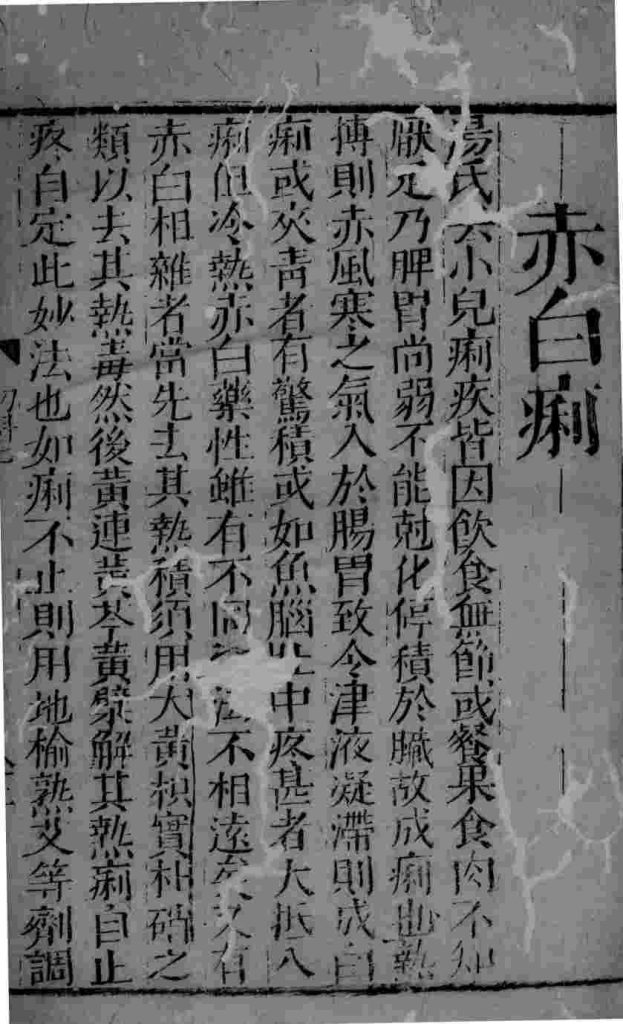 赤白痢
湯氏云小兒痢疾皆因飲食無節或餐果食肉不知
厭足乃脾胃尚弱不能尅化停積於臟故成痢也熱
搏則赤風寒之氣入於腸胃致令津液凝滯則成白
痢或夾青者有驚積或如魚腦肚中疼甚者大抵八
痢但冷熱赤白藥性雖有不同法不相遠矣又有
赤白相雜者當先去其熱積須用大黃枳實朴硝之
類以去其熱毒然後黃連黃芩黃檗解其熱痢自止
疼自定此妙法也如痢不止則用地榆熟艾等劑調